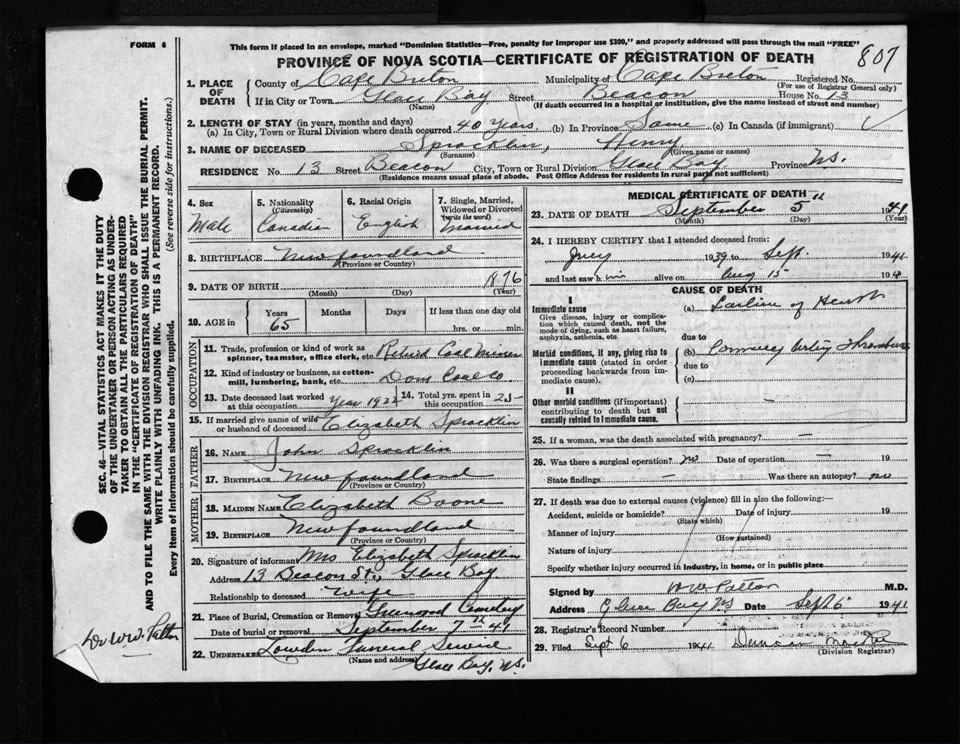 FORM 6
This form if placed in an envelope, marked "Dominion Statistics—Free, penalty for improper use $300," and properly addressed will pass through the mail "FREE"
PROVINCE OF NOVA SCOTIA—CERTIFICATE OF REGISTRATION OF DEATH
807
1. PLACE OF DEATH
County of Cape Breton Municipality of Cape Breton Registered No.
(For use of Registrar General only)
If in City or Town Glace Bay Street Beacon House No. 13
(Name) (If death occurred in a hospital or institution, give the name instead of street and number)
2. LENGTH OF STAY (in years, months and days)
(a) In City, Town or Rural Division where death occurred 40 years. (b) In Province Same (c) In Canada (if immigrant)
3. NAME OF DECEASED Sprocklin, Henry
(Surname) (Given name or names)
RESIDENCE No. 13 Street Beacon City, Town or Rural Division Glace Bay Province N.S.
(Residence means usual place of abode. Post Office Address for residents in rural parts not sufficient)
4. Sex
Male
5. Nationality
(Citizenship)
Canadian
6. Racial Origin
English
7. Single, Married, Widowed or Divorced
(write the word)
Married
8. BIRTHPLACE Newfoundland
(Province or Country)
9. DATE OF BIRTH 1876
(Month) (Day) (Year)
10. AGE in
Years Months Days If less than one day old
65 hrs. or min.
OCCUPATION
11. Trade, profession or kind of work as spinner, teamster, office clerk, etc. Retired Coal Miner
12. Kind of industry or business, as cotton-mill, lumbering, bank, etc. Dom Coal Co
13. Date deceased last worked at this occupation Year 14. Total yrs. spent in this occupation 25
15. If married give name of wife or husband of deceased Elizabeth Sprocklin
FATHER
16. NAME John Sprocklin
17. BIRTHPLACE Newfoundland
(Province or Country)
MOTHER
18. MAIDEN NAME Elizabeth Boone
19. BIRTHPLACE Newfoundland
(Province or Country)
20. Signature of informant Mrs Elizabeth Sprocklin
Address 13 Beacon St., Glace Bay
Relationship to deceased Wife
21. Place of Burial, Cremation or Removal Greenwood Cemetery
Date of burial or removal September 7th 41
22. UNDERTAKER Lowden Funeral Service
(Name and address) Glace Bay, N.S.
MEDICAL CERTIFICATE OF DEATH
23. DATE OF DEATH September 5th 1941
(Month) (Day) (Year)
24. I HEREBY CERTIFY that I attended deceased from:
July 1939 to Sept. 1941
and last saw him alive on Aug 15 194
CAUSE OF DEATH
I
Immediate cause
Give disease, injury or complication which caused death, not the mode of dying, such as heart failure, asphyxia, asthenia, etc.
(a) Failure of Heart
due to
Morbid conditions, if any, giving rise to immediate cause (stated in order proceeding backwards from immediate cause).
(b) Coronary Artery Thrombosis
due to
(c)
II
Other morbid conditions (if important) contributing to death but not causally related to immediate cause.
25. If a woman, was the death associated with pregnancy?
26. Was there a surgical operation? no Date of operation 19
State findings Was there an autopsy? no
27. If death was due to external causes (violence) fill in also the following:—
Accident, suicide or homicide? Date of injury 19
(State which)
Manner of injury
(How sustained)
Nature of injury
Specify whether injury occurred in industry, in home, or in public place
Signed by W.W. Patton M.D.
Address Glace Bay NS Date Sept 6 1941
28. Registrar's Record Number
29. Filed Sept 6 1941
(Division Registrar)
SEC. 46—VITAL STATISTICS ACT MAKES IT THE DUTY OF THE UNDERTAKER OR PERSON ACTING AS UNDERTAKER TO OBTAIN ALL THE PARTICULARS REQUIRED IN THE "CERTIFICATE OF REGISTRATION OF DEATH"
AND TO FILE THE SAME WITH THE DIVISION REGISTRAR WHO SHALL ISSUE THE BURIAL PERMIT.
WRITE PLAINLY WITH UNFADING INK. THIS IS A PERMANENT RECORD.
Every item of Information should be carefully supplied. (See reverse side for instructions.)
Dr W.W. Patton